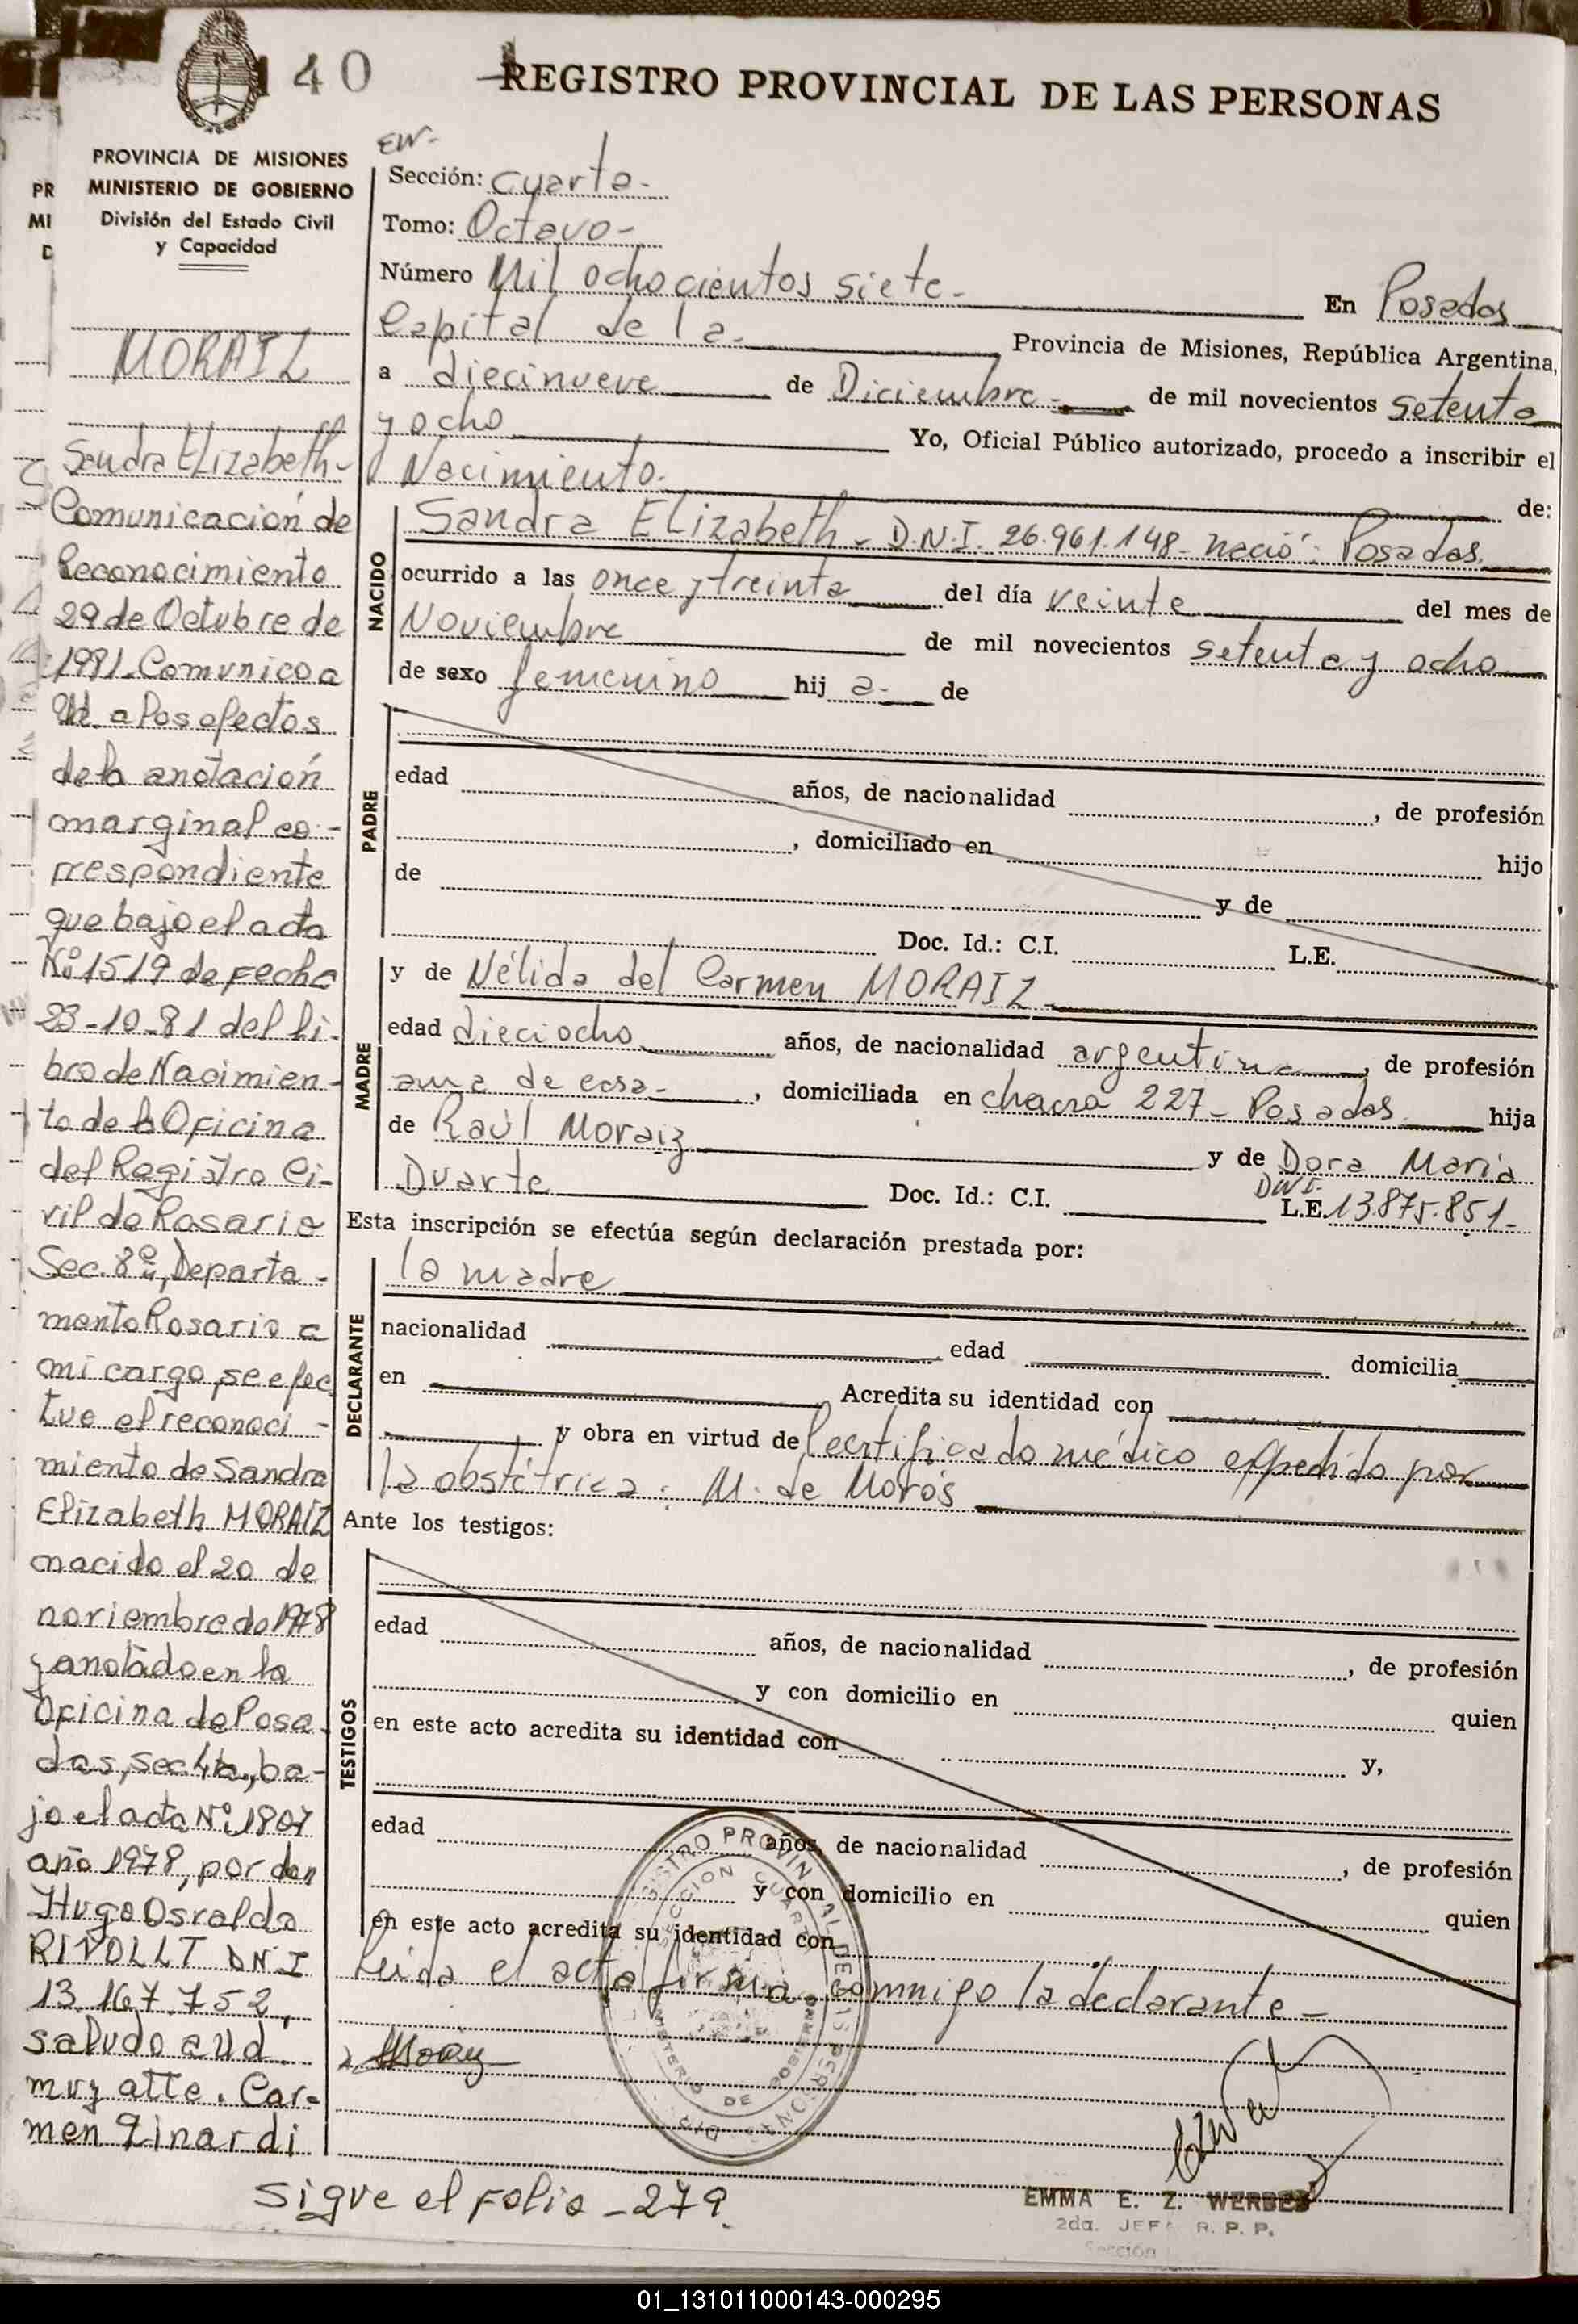 140
REGISTRO PROVINCIAL DE LAS PERSONAS
PROVINCIA DE MISIONES
MINISTERIO DE GOBIERNO
División del Estado Civil
y Capacidad
PR
MI
D
MORAIZ
Sandra ELizabeth-
Comunicación de
Reconocimiento
29 de Octubre de
1981. Comunico a
Ud. a los efectos
de la anotación
marginal co-
rrespondiente
que bajo el acta
Nº 1519 de Fecha
23-10-81 del li-
bro de Nacimien-
to de la Oficina
del Registro Ci-
vil de Rosario
Sec. 8ª, Departa-
mento Rosario a
mi cargo, se efec
tuo el reconoci-
miento de Sandra
Elizabeth MORAIZ
nacido el 20 de
noviembre de 1978
y anotado en la
Oficina de Posa-
das, sec 4ta, ba-
jo el acta Nº 1807
año 1978, por don
Hugo Osvaldo
RIVOLLT DNI
13.167.752,
saludo a Ud.
muy atte. Car-
men Linardi
EW-
Sección: Cuarta-
Tomo: Octavo-
Número Mil ochocientos siete- En Posadas
Capital de la- Provincia de Misiones, República Argentina,
a diecinueve de Diciembre- de mil novecientos setenta
y ocho Yo, Oficial Público autorizado, procedo a inscribir el
Nacimiento- de:
NACIDO
Sandra ELizabeth- D.N.I. 26.961.148- nació: Posadas.
ocurrido a las once y treinta del día veinte del mes de
Noviembre de mil novecientos setenta y ocho
de sexo femenino hij a- de
PADRE
edad años, de nacionalidad , de profesión
, domiciliado en hijo
de y de
Doc. Id.: C.I. L.E.
MADRE
y de Nélida del Carmen MORAIZ
edad dieciocho años, de nacionalidad argentina , de profesión
ama de casa- , domiciliada en chacra 227- Posadas hija
de Raúl Moraiz y de Dora María
Duarte Doc. Id.: C.I. DNI- L.E. 13.875.851-
Esta inscripción se efectúa según declaración prestada por:
DECLARANTE
la madre
nacionalidad edad domicilia
en Acredita su identidad con
y obra en virtud de Certificado médico expedido por
la obstétrica: M. de Morós
Ante los testigos:
TESTIGOS
edad años, de nacionalidad , de profesión
y con domicilio en quien
en este acto acredita su identidad con y,
edad años, de nacionalidad , de profesión
y con domicilio en quien
en este acto acredita su identidad con
Leída el acta firma conmigo la declarante-
EMMA E. Z. WERBES
2da. JEF R. P. P.
Sección
Sigue el Folio-279.
01_131011000143-000295